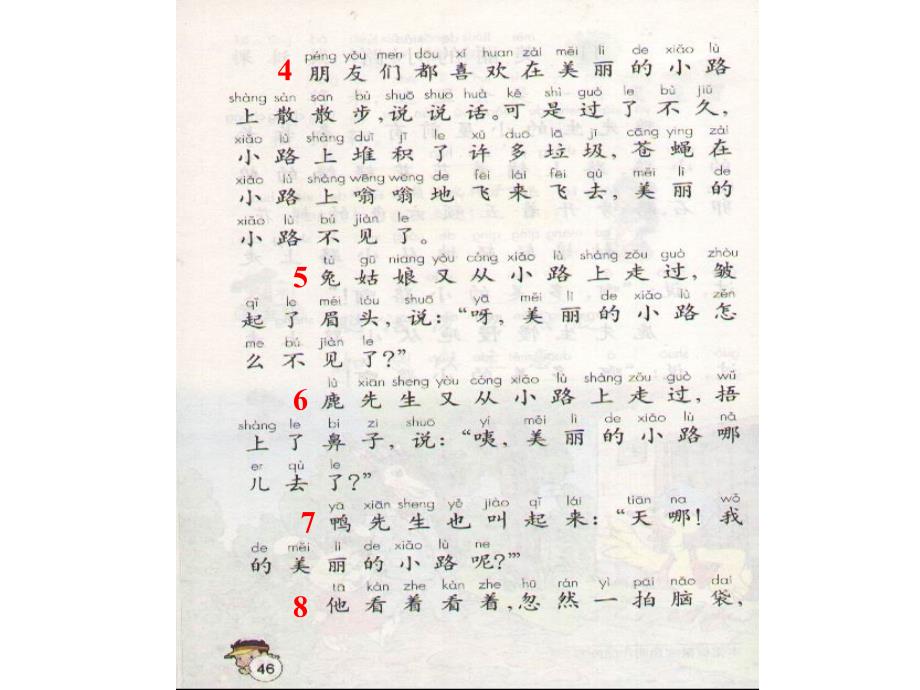 péng yǒu men dōu xǐ huan zài měi lì de xiǎo lù
4 朋友们都喜欢在美丽的小路
shàng sàn san bù shuō shuo huà kě shì guò le bù jiǔ
上散散步,说说话。可是过了不久,
xiǎo lù shàng duī jī le xǔ duō lā jī cāng ying zài
小路上堆积了许多垃圾,苍蝇在
xiǎo lù shàng wēng wēng de fēi lái fēi qù měi lì de
小路上嗡嗡地飞来飞去,美丽的
xiǎo lù bú jiàn le
小路不见了。
tù gū niang yòu cóng xiǎo lù shàng zǒu guò zhòu
5 兔姑娘又从小路上走过,皱
qǐ le méi tóu shuō yā měi lì de xiǎo lù zěn
起了眉头,说:“呀,美丽的小路怎
me bú jiàn le
么不见了?”
lù xiān sheng yòu cóng xiǎo lù shàng zǒu guò wǔ
6 鹿先生又从小路上走过,捂
shàng le bí zi shuō yí měi lì de xiǎo lù nǎ
上了鼻子,说:“咦,美丽的小路哪
er qù le
儿去了?”
yā xiān sheng yě jiào qǐ lái tiān na wǒ
7 鸭先生也叫起来:“天哪!我
de měi lì de xiǎo lù ne
的美丽的小路呢?”’
tā kàn zhe kàn zhe hū rán yì pāi nǎo dai
8 他看着看着,忽然一拍脑袋,
46